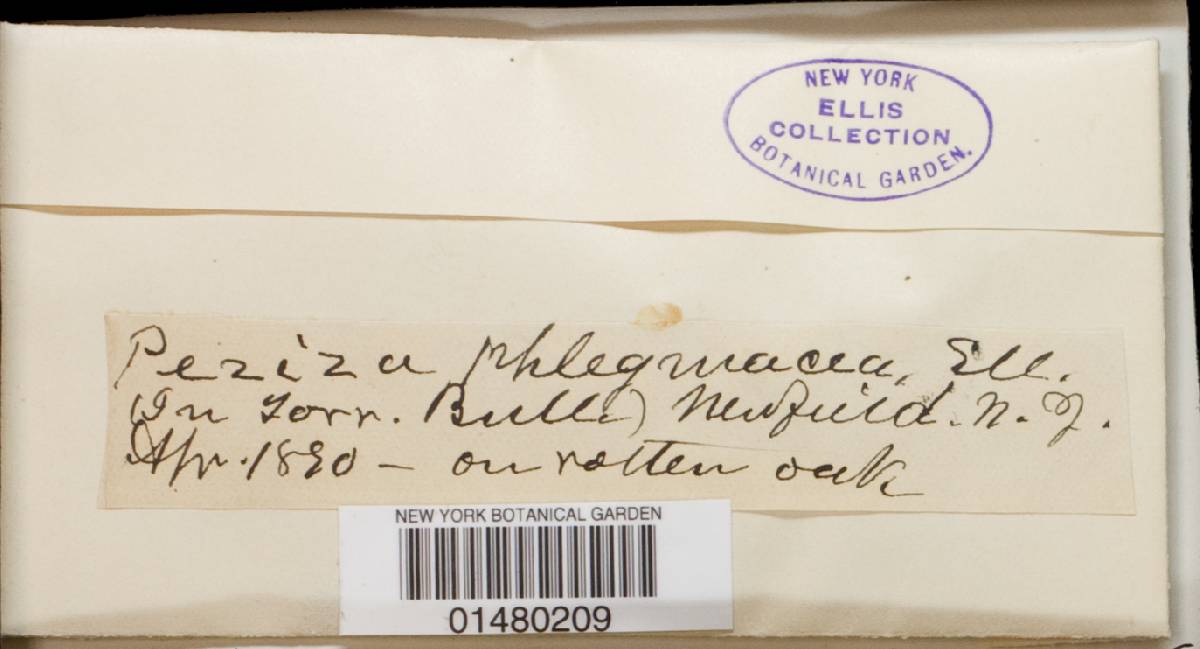 NEW YORK
ELLIS
COLLECTION
BOTANICAL GARDEN.
Peziza phlegmacea, Ell.
(In Torr. Bull.) Newfield. N. J.
Apr. 1880 – on rotten oak
NEW YORK BOTANICAL GARDEN
01480209